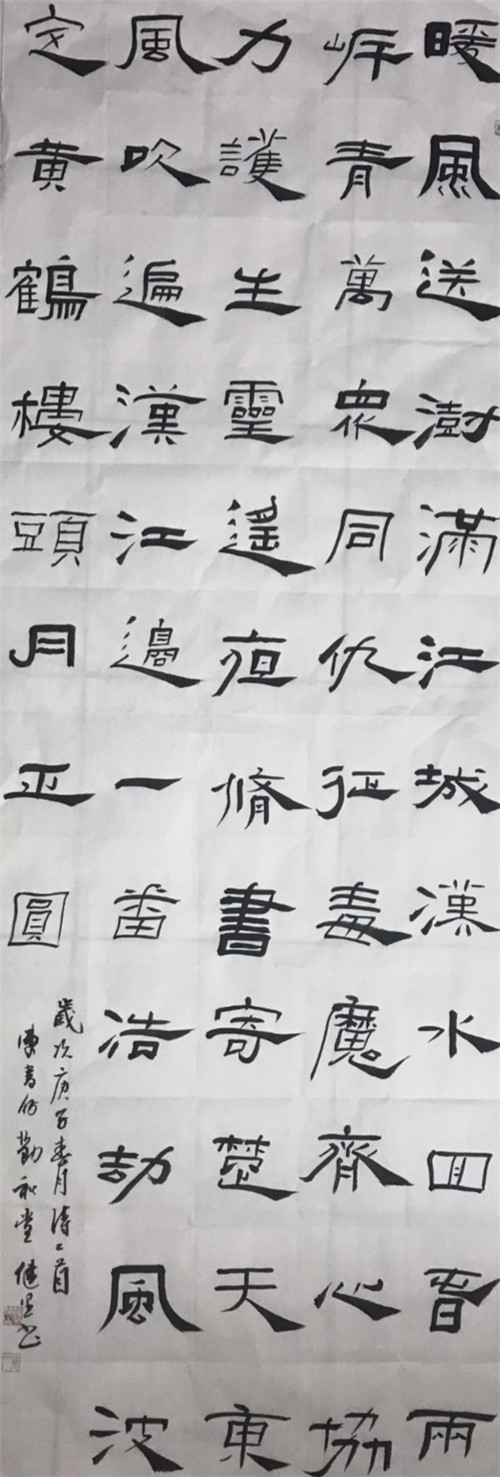 暖風送澍滿江城漢水回春兩
岸青萬眾同仇征毒魔齊心協
力護生靈遙夜脩書寄楚天東
風吹遍漢江邊一番浩劫風波
定黃鶴樓頭月正圓
歲次庚子春月詩二首
勤和堂